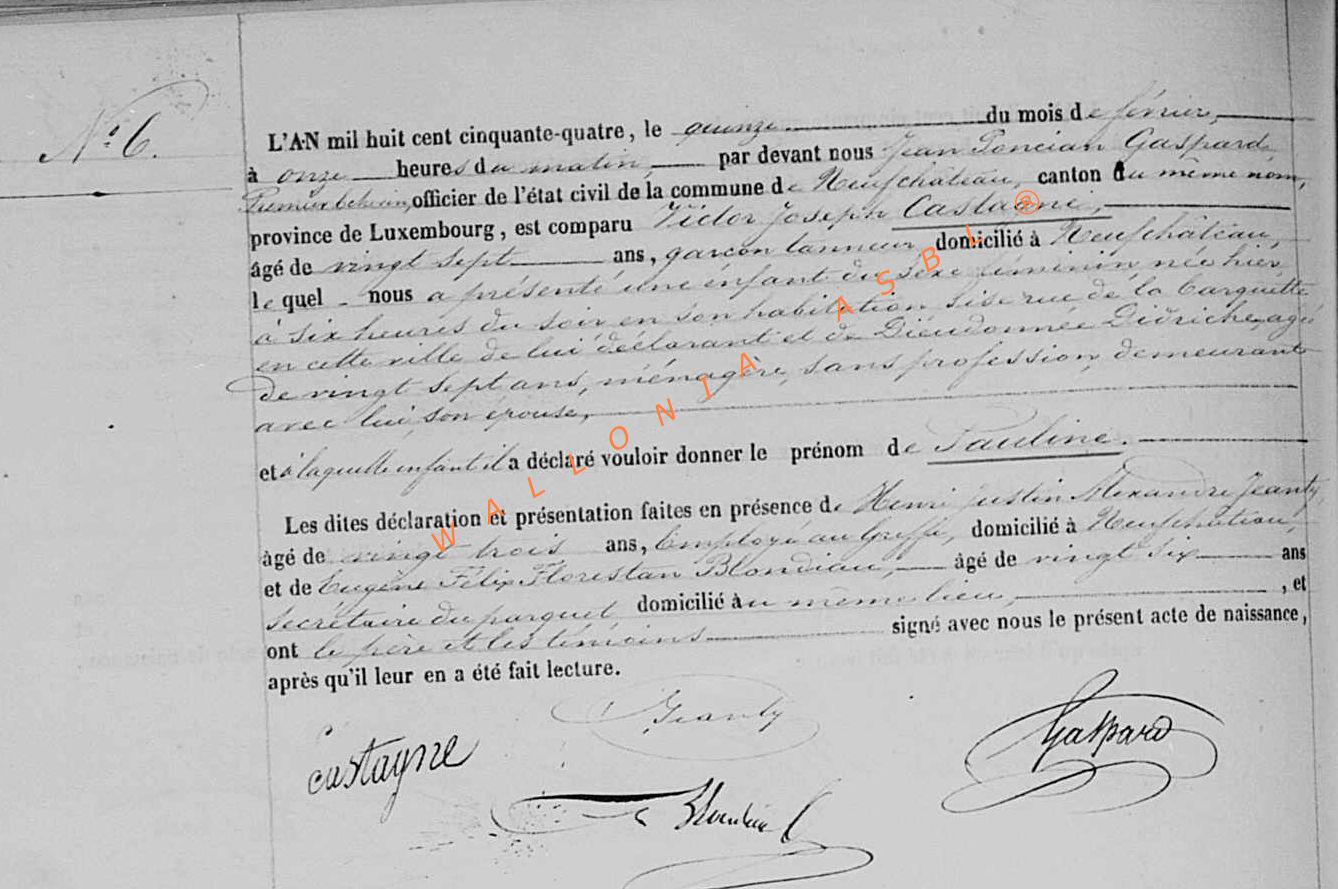 N° 6.
L'AN mil huit cent cinquante-quatre, le quinze du mois de février,
à onze heures du matin, par devant nous Jean Poncian Gaspard
Premier Echevin, officier de l'état civil de la commune de Neufchâteau, canton du même nom,
province de Luxembourg, est comparu Victor Joseph Castagne,
âgé de vingt sept ans, garçon tanneur domicilié à Neufchâteau,
le quel nous a présenté une enfant du sexe féminin née hier
à six heures du soir en son habitation sise rue de la
en cette ville de lui déclarant et de Dieudonnée Didriche, agée
de vingt sept ans, ménagère, sans profession, demeurant
avec lui, son épouse,
et à laquelle enfant il a déclaré vouloir donner le prénom de Pauline.
Les dites déclaration et présentation faites en présence de Henri Justin Alexandre Jeanty
âgé de vingt trois ans, Employé au Greffe, domicilié à Neufchâteau,
et de Eugène Félix Florestan Blondiau, âgé de vingt six ans
secrétaire du parquet domicilié au même lieu, et
ont le père et les témoins signé avec nous le présent acte de naissance,
après qu'il leur en a été fait lecture.
Jeanty
Castagne
Gaspard
Blondiau
WALLONIA ASBL ®